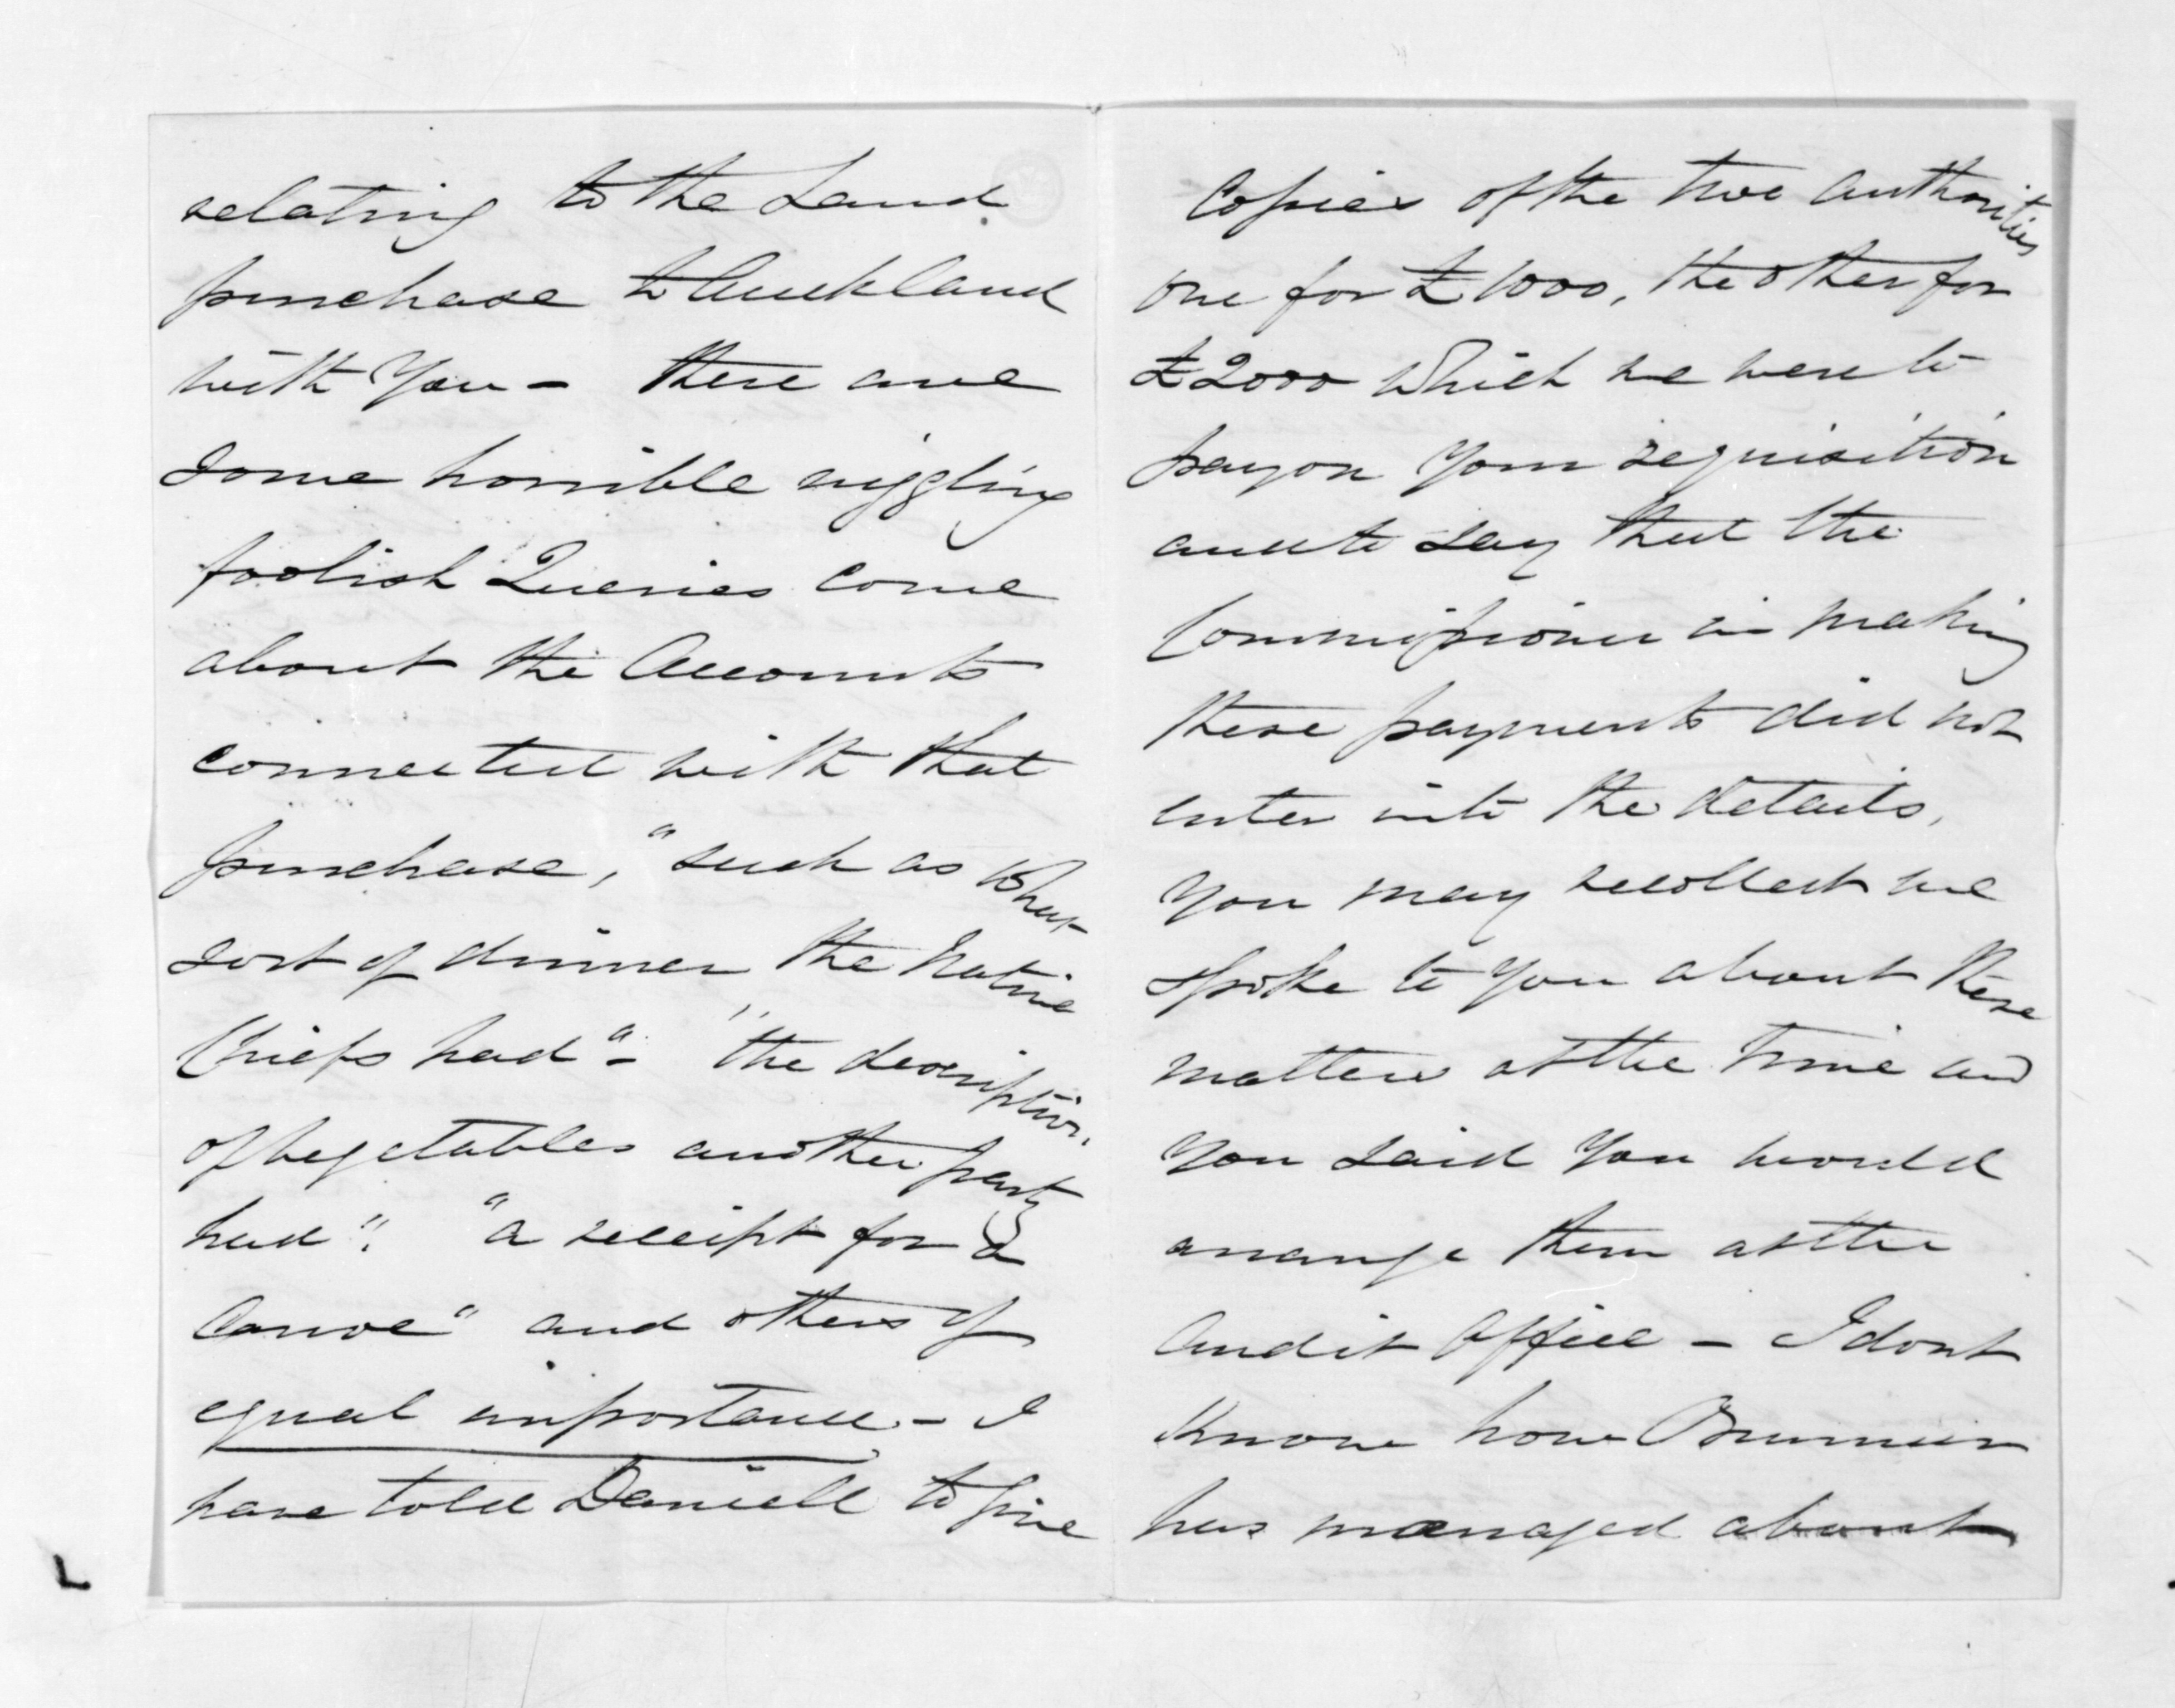 relating to the Land
purchase to Auckland
with You - there are
some horrible niggling
foolish Queries come
about the Accounts
connected with that
purchase, "such as what
sort of dinner the Native
Chiefs had" - "the description
of vegetables another party
had". "a receipt for a
Canoe" and others of
equal importance - I
have told Daniell to give
Copies of the two authorities
one for £1000, the other for
£2000 which we were to
pay on Your requisition
and to say that the
Commissioner in making
these payments did not
enter into the details,
You may recollect we
spoke to You about these
matters at the time and
You said You would
arrange them at the
Audit Office - I dont
Know how
has managed about